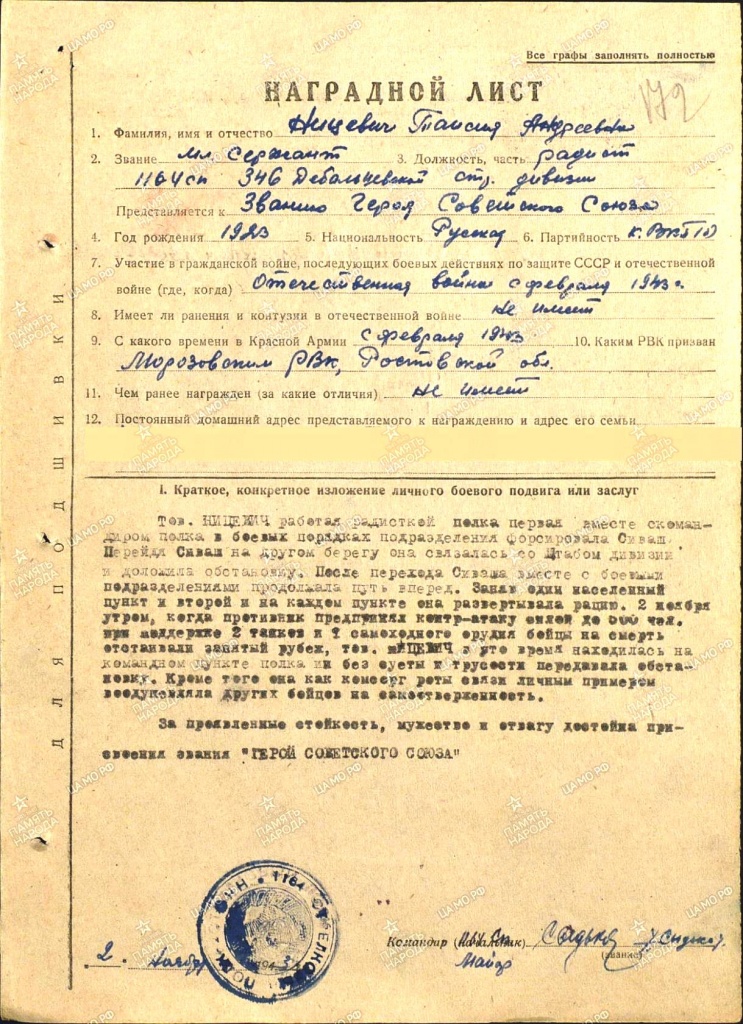 Все графы заполнять полностью
НАГРАДНОЙ ЛИСТ
172
1. Фамилия, имя и отчество Ницевич Таисия Андреевна
2. Звание мл. сержант 3. Должность, часть радист
1164 сп 346 Дебальцевской стр. дивизии
Представляется к Званию Героя Советского Союза
4. Год рождения 1923 5. Национальность Русская 6. Партийность к. ВКП(б)
7. Участие в гражданской войне, последующих боевых действиях по защите СССР и отечественной
войне (где, когда) Отечественная война с февраля 1943 г.
8. Имеет ли ранения и контузии в отечественной войне не имеет
9. С какого времени в Красной Армии с февраля 1943 10. Каким РВК призван
Морозовским РВК, Ростовской обл.
11. Чем ранее награжден (за какие отличия) не имеет
12. Постоянный домашний адрес представляемого к награждению и адрес его семьи
I. Краткое, конкретное изложение личного боевого подвига или заслуг
Тов. НИЦЕВИЧ работая радисткой полка первая вместе скоман-
диром полка в боевых порядках подразделения форсировала Сиваш.
Перейдя Сиваш на другом берегу она связалась со Штабом дивизии
и доложила обстановку. После перехода Сиваша вместе с боевыми
подразделениями продолжала путь вперед. Заняв один населенный
пункт и второй и на каждом пункте она развертывала рацию. 2 ноября
утром, когда противник предпринял контр-атаку силой до 500 чел.
при поддержке 2 танков и 1 самоходного орудия бойцы на смерть
отстаивали занятый рубеж, тов. НИЦЕВИЧ в это время находилась на
командном пункте полка и без суеты и трусости передавала обста-
новку. Кроме того она как комсорг роты связи личным примером
воодушевляла других бойцов на самоотверженность.
За проявленные стойкость, мужество и отвагу достойна при-
своения звания "ГЕРОЙ СОВЕТСКОГО СОЮЗА"
Командир (начальник) 1164 Сп
Майор (звание)
2. Ноября
1164 СТРЕЛКОВЫЙ ПОЛК
ДЛЯ ПОДШИВКИ
ПАМЯТЬ НАРОДА
ЦАМО.РФ